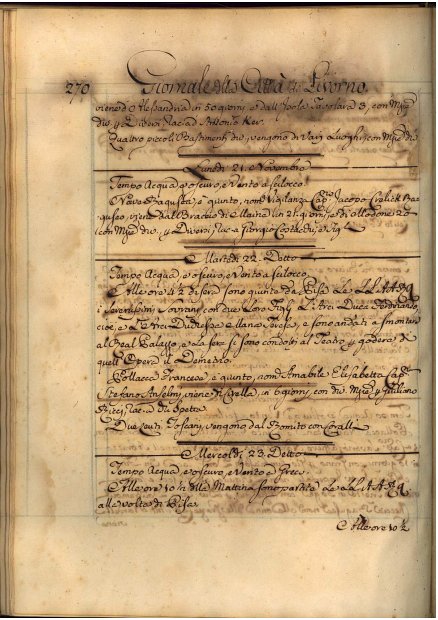 270 Giornale della Città di Livorno
viene d'Alessandria in 50 giorni, e dall'Isola Tavolara 3, con Mzie
div. p. Diversi, rac. ad Antonio Ker.
Quattro piccoli Bastimenti div. vengono da Varj Luoghi con Mzie div.
Lunedì 21. Novembre
Tempo Acqua, e oscuro, e Vento a scilocco.
Nave Ragusea, è giunto, nom. Vigilanza Cap. Jacopo Ra=
guseo, viene dal Braccio di Maina in 27 giorni, e di Modone 20
con Mzie div. p. Diversi, rac. a Giorgio e Figl.
Martedì 22. Detto
Tempo Acqua, e oscuro, e Vento a scilocco.
All'ore 4 ½ di sera sono giunte da Pisa Le LL. AA. RR.
i Serenissimi Sovrani con due Loro Figli L'Arci Duca Ferdinando,
cioè, e L'Arci Duchessa Maria Teresa, e sono andati a smontare
al Real Palazzo, e la sera si sono condotti al Teatro p. godere
quell'Opera il Demetrio.
Pollacca Francese, è giunto, nom. Amabile Elisabetta Cap.
Stefano Anselmi, viene di in 6 giorni, con div. Mzie p. Giuliano
Ricci, rac. a da Spetra
Due Leuti Toscani, vengono dal Romito con Coralli
Mercoledì 23. Detto
Tempo Acqua, e oscuro, e Vento a Greco.
All'ore 10 ½ della Mattina sono partite Le LL. AA. RR.
alla volta di Pisa.
All'ore 10 ½